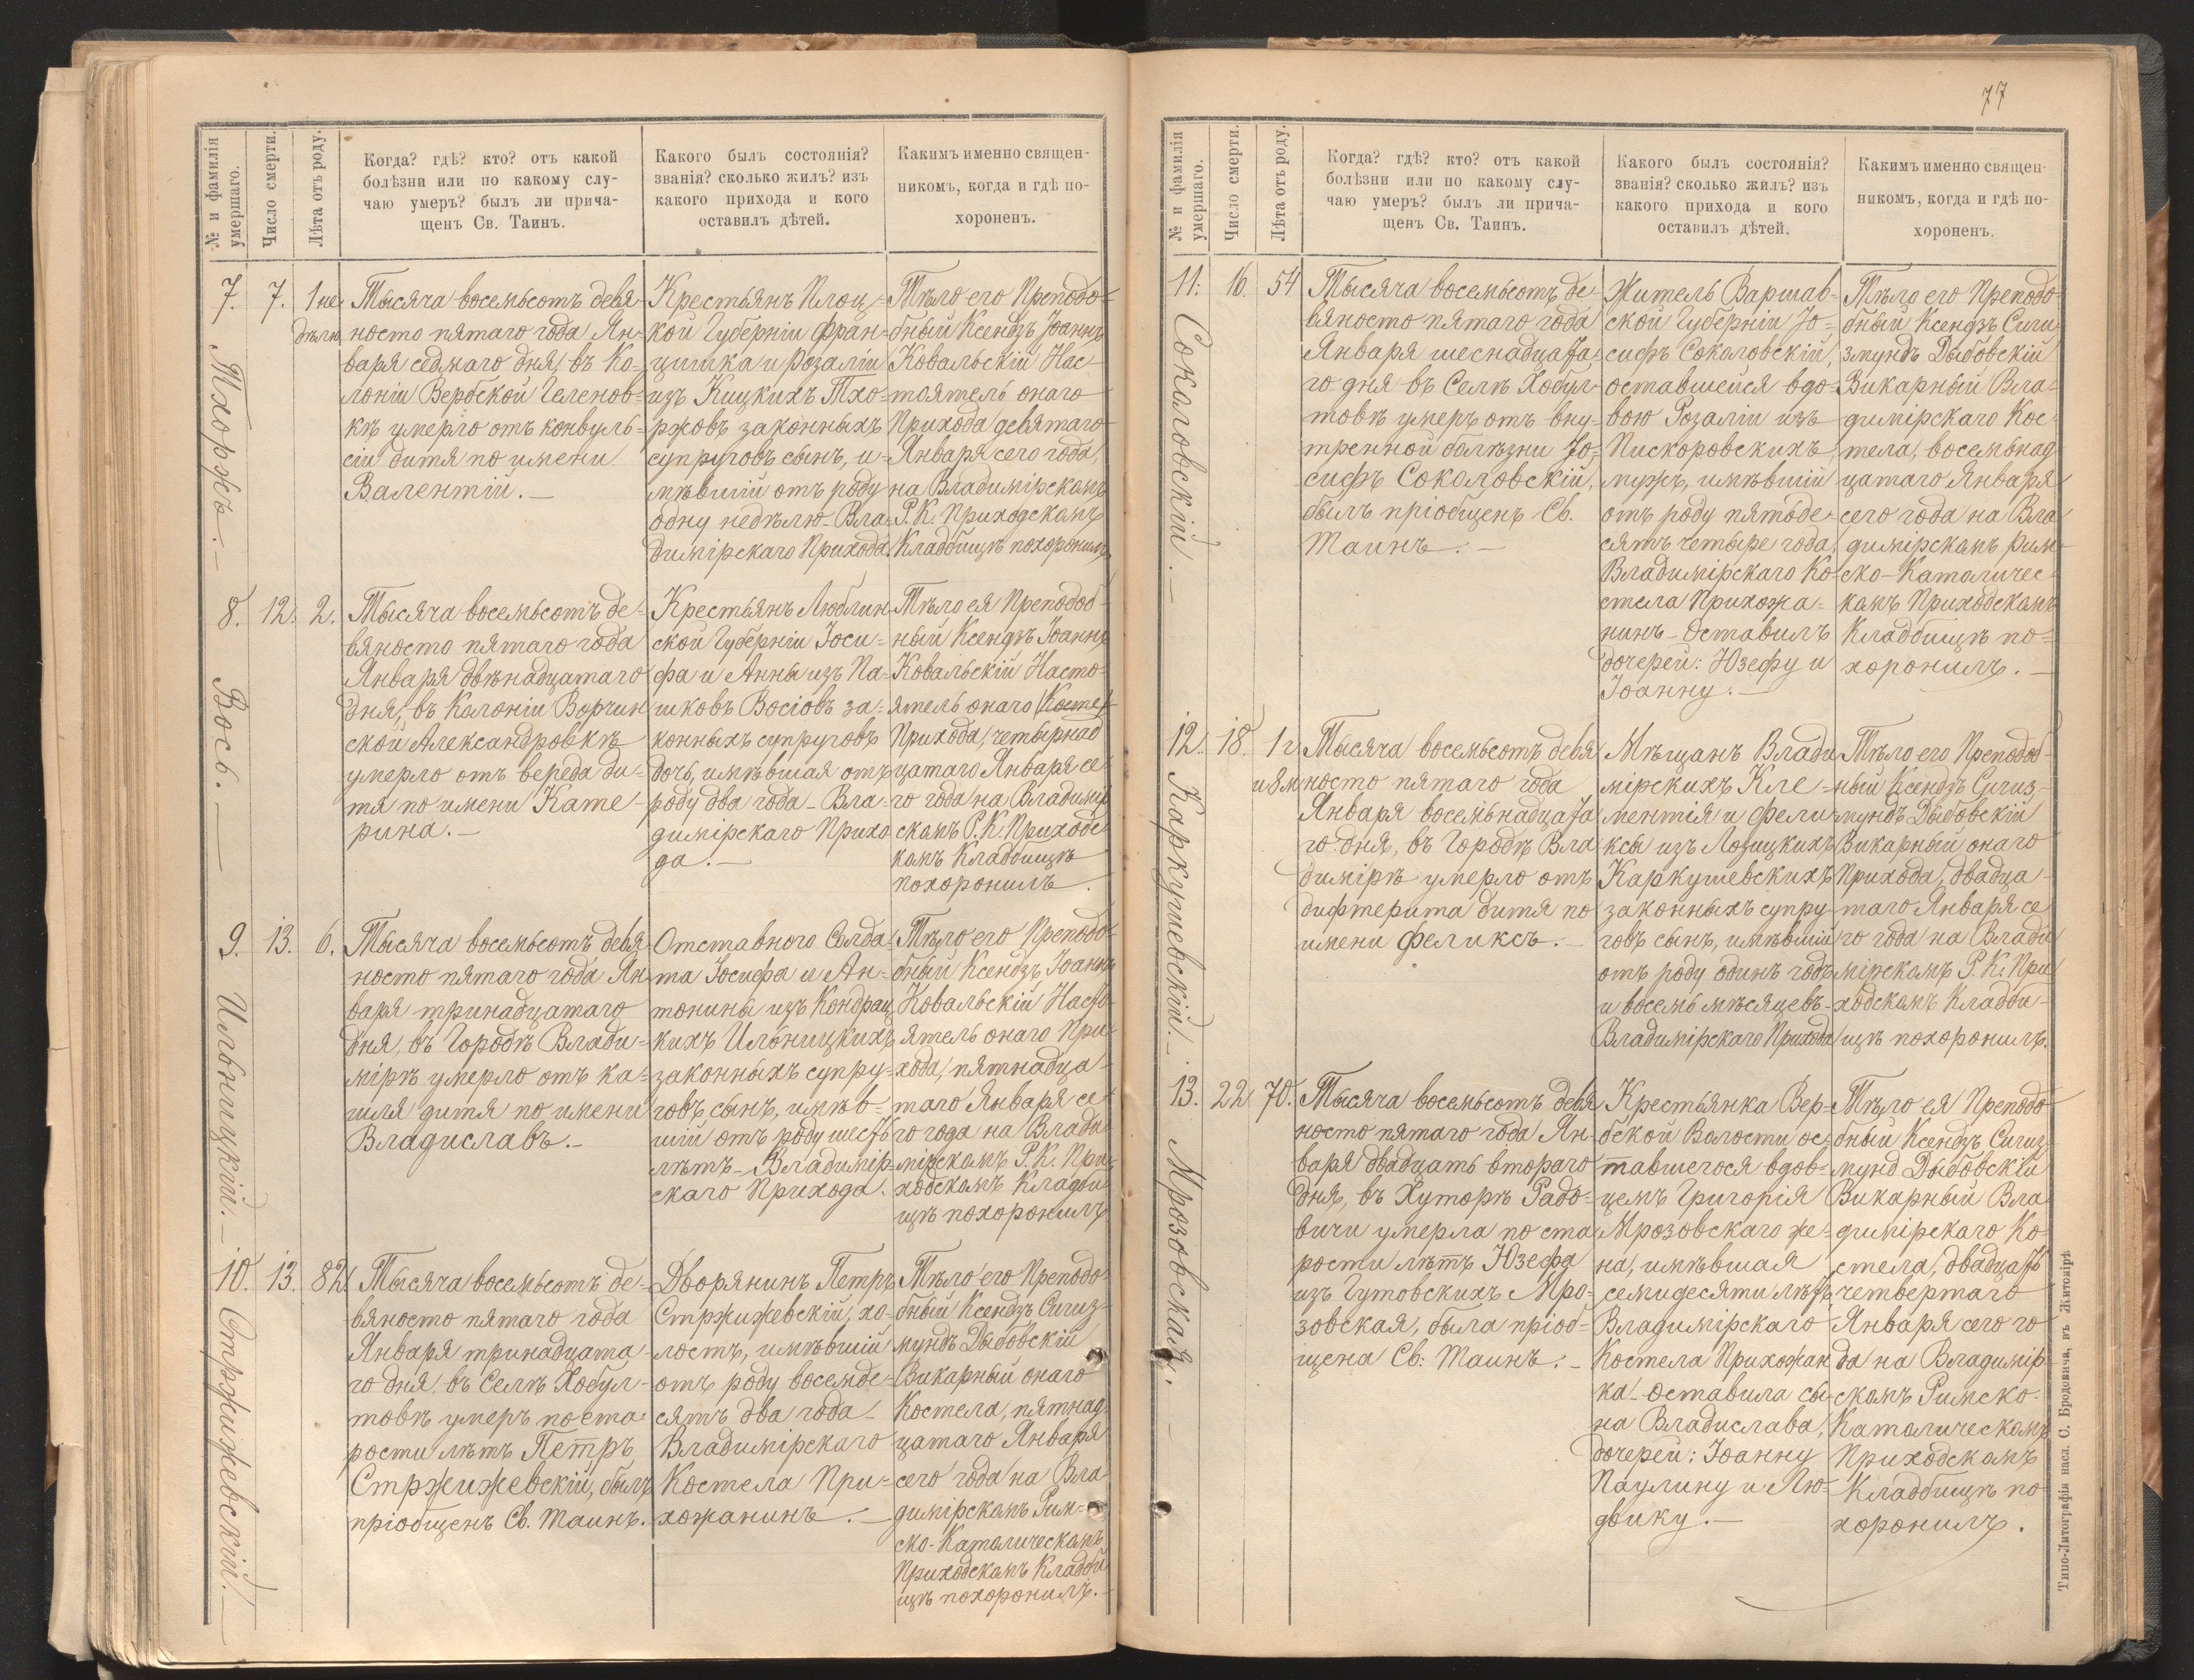 № и фамилія
умершаго.
Число смерти.
Лѣта отъ роду.
Когда? гдѣ? кто? отъ какой
болѣзни или по какому слу-
чаю умеръ? былъ ли прича-
щенъ Св. Таинъ.
Какого былъ состоянія?
званія? сколько жилъ? изъ
какого прихода и кого
оставилъ дѣтей.
Какимъ именно священ-
никомъ, когда и гдѣ по-
хороненъ.
7.
Тхоржъ.—
7.
1 не
дѣлю
Тысяча восемьсотъ девя-
носто пятаго года Ян-
варя седмаго дня, въ Ко-
лоніи Вербской Геленов-
кѣ умерло отъ конвуль-
сіи дитя по имени
Валентій.—
Крестьянъ Плоц-
кой Губерніи Фран-
цишка и Розаліи
изъ Кицкихъ Тхо-
ржовъ законныхъ
супруговъ сынъ, и-
мѣвшій отъ роду
одну недѣлю- Вла-
димірскаго Прихода.
Тѣло его Преподо-
бный Ксендзъ Іоаннъ
Ковальскій Нас-
тоятель онаго
Прихода девятаго
Января сего года,
на Владимірскомъ
Р. К. Приходскомъ
Кладбищѣ похоронилъ
8.
Вось.—
12.
2.
Тысяча восемьсотъ де-
вяносто пятаго года
Января двѣнадцатаго
дня, въ Колоніи Ворчин
ской Александровкѣ
умерло отъ вереда ди-
тя по имени Кате-
рина.—
Крестьянъ Люблин-
ской Губерніи Іоси-
фа и Анны изъ Па-
шковъ Восіовъ за-
конныхъ супруговъ
дочь, имѣвшая отъ
роду два года- Вла-
димірскаго Прихо
да.—
Тѣло ея Преподоб-
ный Ксендзъ Іоаннъ
Ковальскій Насто-
ятель онаго Косте
Прихода, четырнад
цатаго Января се-
го года на Владимір
скомъ Р. К. Приходс
комъ Кладбищѣ
похоронилъ.
9.
Ильницкій.—
13.
6.
Тысяча восемьсотъ девя
носто пятаго года Ян-
варя тринадцатаго
дня, въ Городѣ Влади-
мірѣ умерло отъ ка-
шля дитя по имени
Владиславъ.—
Отставного Солда-
та Іосифа и Ан-
тонины изъ Кондрац
кихъ Ильницкихъ
законныхъ супру-
говъ сынъ, имѣв-
шій отъ роду шесть
лѣтъ- Владимір-
скаго Прихода.
Тѣло его Преподо-
бный Ксендзъ Іоаннъ
Ковальскій Насто
ятель онаго При-
хода, пятнадца-
таго Января се-
го года на Влади
мірскомъ Р. К. При-
ходскомъ Кладби
щѣ похоронилъ
10.
Стржижевскій.—
13.
82.
Тысяча восемьсотъ де-
вяносто пятаго года
Января тринадцата-
го дня, въ Селѣ Хобул-
товѣ умеръ по ста-
рости лѣтъ Петръ
Стржижевскій, былъ
пріобщенъ Св. Таинъ.
Дворянинъ Петръ
Стржижевскій, хо-
лостъ, имѣвшій
отъ роду восемде-
сятъ два года-
Владимірскаго
Костела При-
хожанинъ.—
Тѣло его Преподо-
бный Ксендзъ Сигиз-
мундъ Дыбовскій
Викарный онаго
Костела, пятнад
цатаго Января
сего года на Вла
димірскомъ Рим-
ско-Католическомъ
Приходскомъ Кладби
щѣ похоронилъ.—
77
№ и фамилія
умершаго.
Число смерти.
Лѣта отъ роду.
Когда? гдѣ? кто? отъ какой
болѣзни или по какому слу-
чаю умеръ? былъ ли прича-
щенъ Св. Таинъ.
Какого былъ состоянія?
званія? сколько жилъ? изъ
какого прихода и кого
оставилъ дѣтей.
Какимъ именно священ-
никомъ, когда и гдѣ по-
хороненъ.
11.
Соколовскій.—
16.
54
Тысяча восемьсотъ де-
вяносто пятаго года
Января шеснадцата-
го дня въ Селѣ Хобул-
товѣ умеръ отъ вну-
тренной болѣзни Іо-
сифъ Соколовскій,
былъ пріобщенъ Св.
Таинъ.—
Житель Варшав-
ской Губерніи Іо-
сифъ Соколовскій,
оставшейся вдо-
вою Розаліи изъ
Пискоровскихъ
мужъ, имѣвшій
отъ роду пятьде-
сятъ четыре года,
Владимірскаго Ко-
стела Прихожа-
нинъ- Оставилъ
дочерей: Юзефу и
Іоанну.—
Тѣло его Преподо
бный Ксендзъ Сиги
змундъ Дыбовскій
Викарный Вла-
димірскаго Кос-
тела, восемьнад
цатаго Января
сего года на Вла
димірскомъ Рим-
ско-Католичес-
комъ Приходскомъ
Кладбищѣ по-
хоронилъ.—
12.
Каркушевскій.—
18.
1 г.
и 8 м
Тысяча восемьсотъ девя
носто пятаго года
Января восемьнадцата
го дня, въ Городѣ Вла
димірѣ умерло отъ
дифтерита дитя по
имени Феликсъ.—
Мѣщанъ Влади
мірскихъ Кле-
ментія и Фели-
ксы изъ Лозицкихъ
Каркушевскихъ
законныхъ супру-
говъ сынъ, имѣвшій
отъ роду одинъ годъ
и восемь мѣсяцевъ-
Владимірскаго Прихода
Тѣло его Преподоб-
ный Ксендзъ Сигиз-
мундъ Дыбовскій
Викарный онаго
Прихода, двадца-
таго Января се
го года на Влади
мірскомъ Р. К. При
ходскомъ Кладби-
щѣ похоронилъ.
13.
Мрозовская.—
22
70.
Тысяча восемьсотъ девя
носто пятаго года Ян-
варя двадцать втораго
дня, въ Хуторѣ Радо-
вичи умерла по ста
рости лѣтъ Юзефа
изъ Гутовскихъ Мро-
зовская, была пріоб-
щена Св: Таинъ.—
Крестьянка Вер-
бской Волости ос-
тавшегося вдов-
цемъ Григорія
Мрозовскаго же-
на, имѣвшая
семидесяти лѣтъ
Владимірскаго
Костела Прихожан
ка- Оставила сы-
на Владислава,
дочерей: Іоанну
Паулину и Лю-
двику.—
Тѣло ея Преподо
бный Ксендзъ Сигиз
мунд Дыбовскій
Викарный Вла
димірскаго Ко
стела, двадцать
четвертаго
Января сего го
да на Владимір-
скомъ Римско-
Католическомъ
Приходскомъ
Кладбищѣ по
хоронилъ.
Типо-Литографія насл. С. Бродовича, въ Житомірѣ